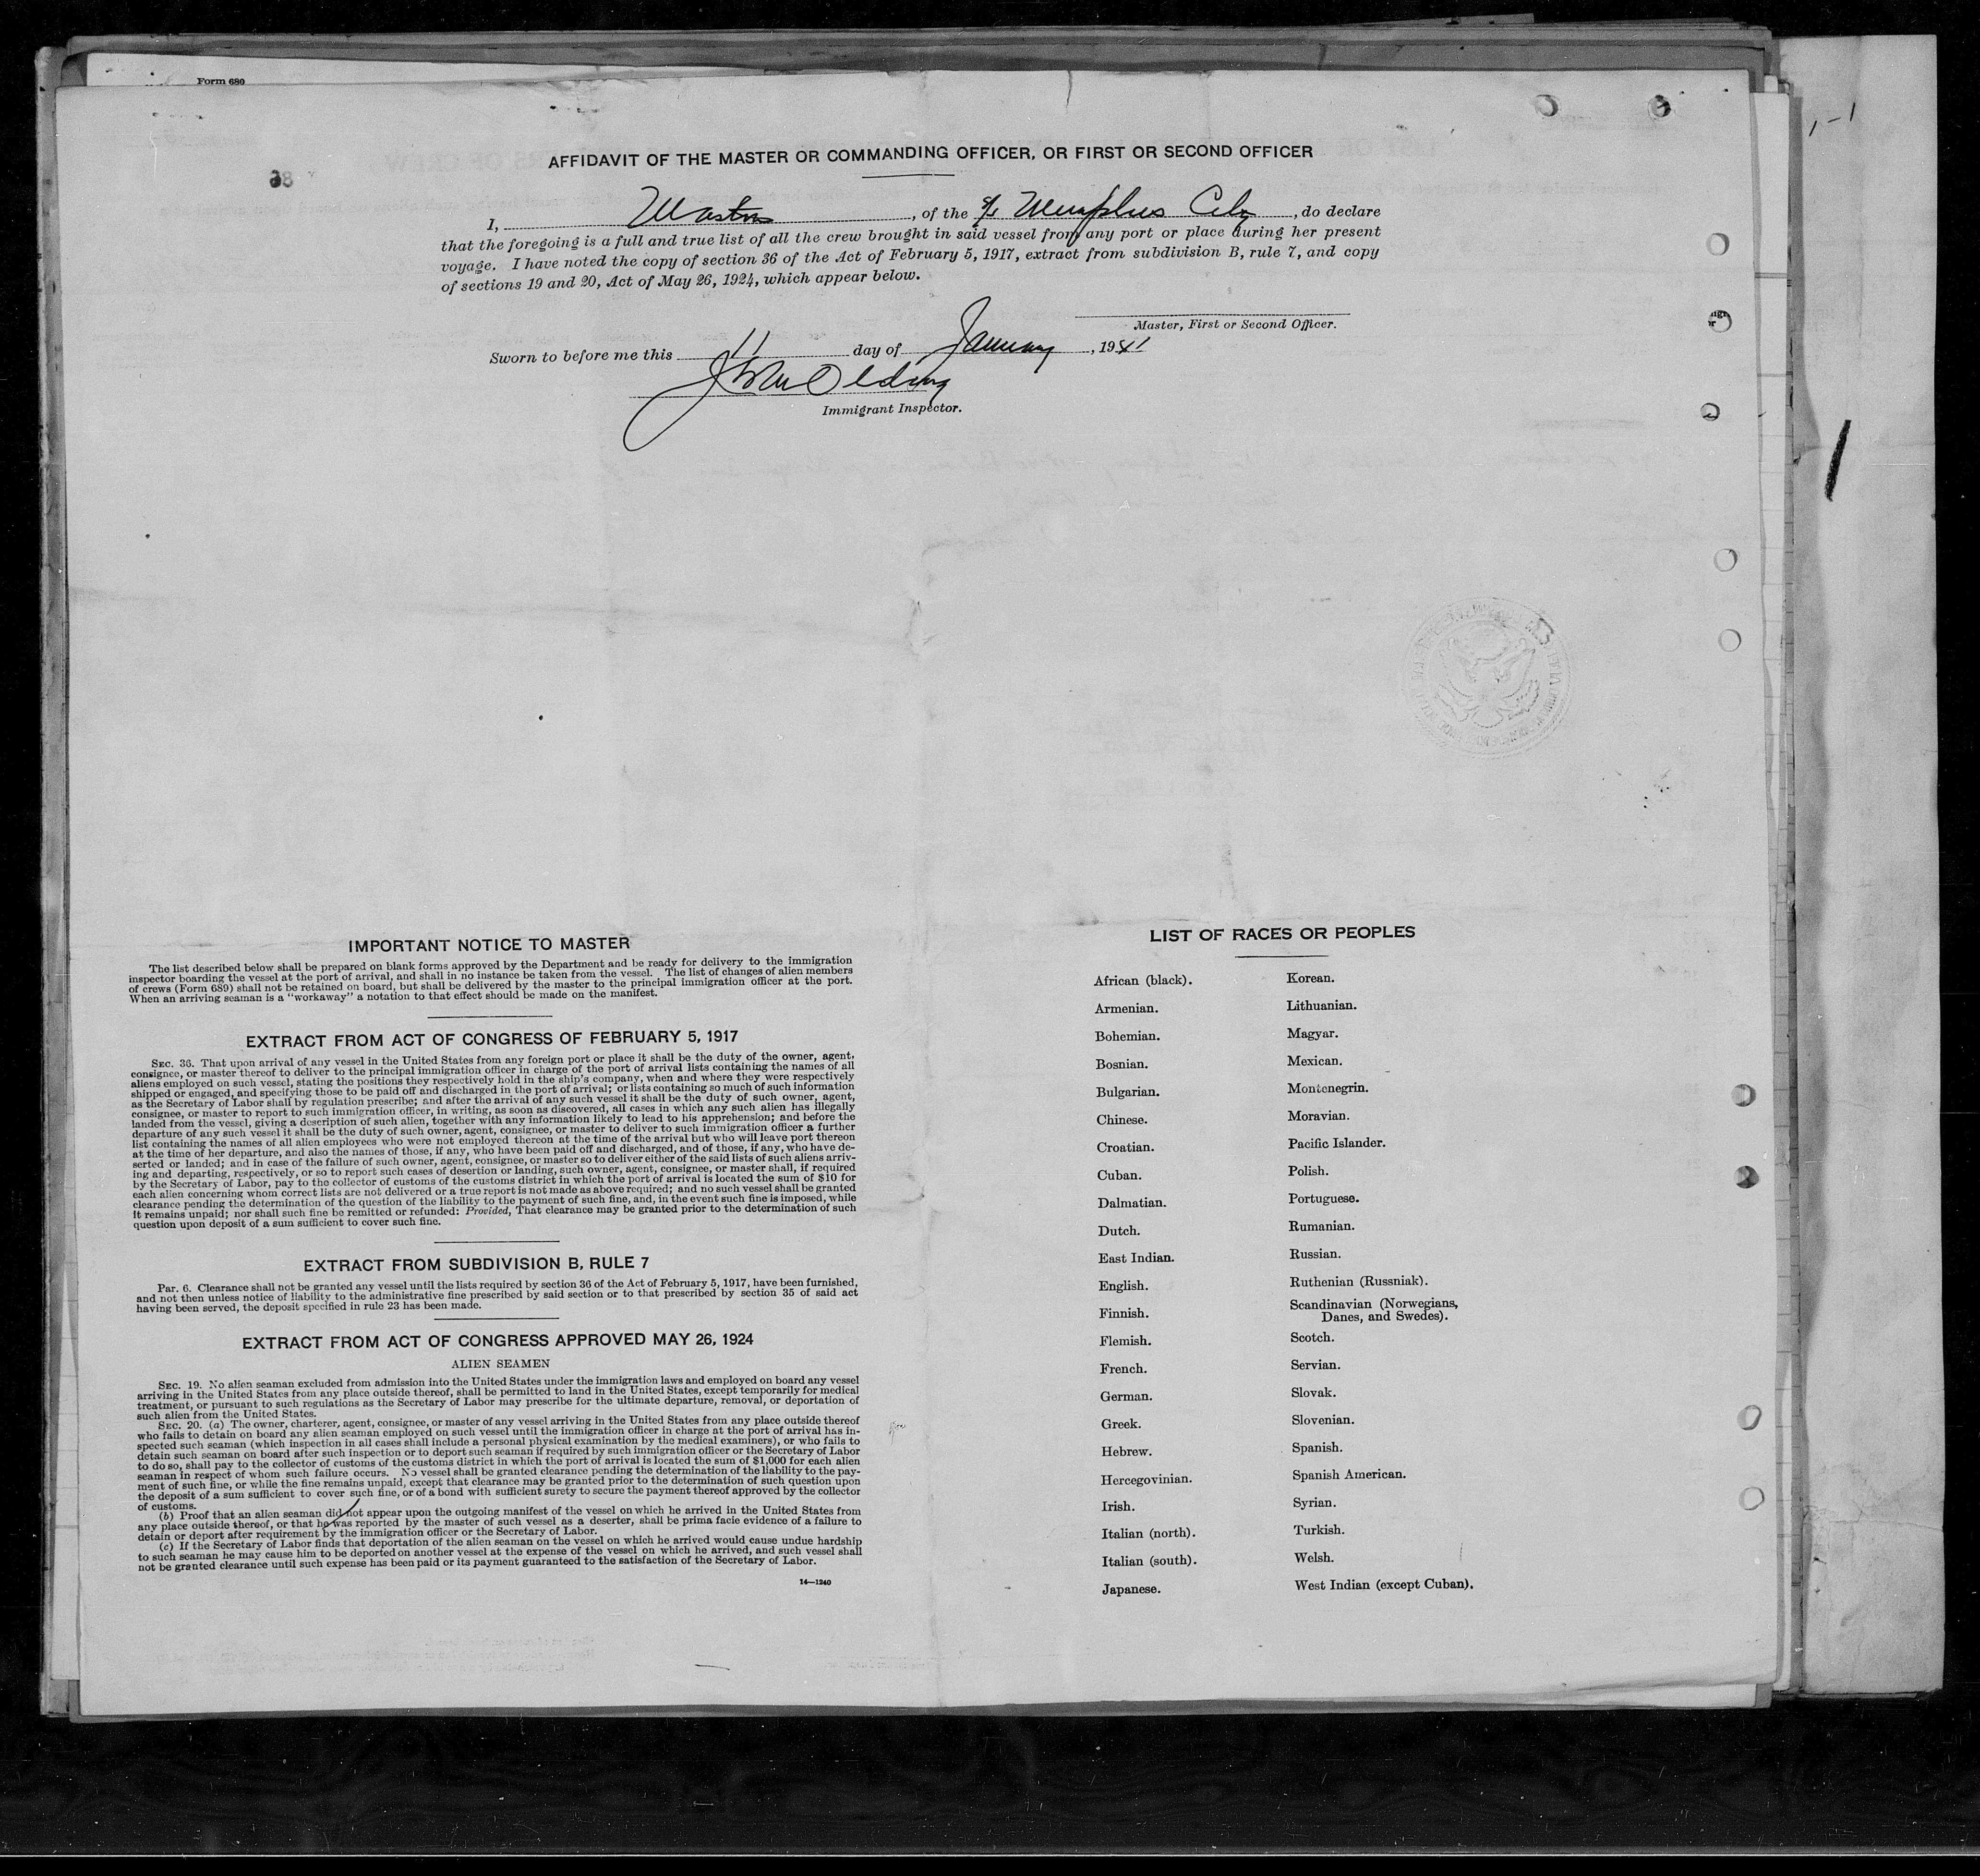 Form 680
38
AFFIDAVIT OF THE MASTER OR COMMANDING OFFICER, OR FIRST OR SECOND OFFICER
I, Master, of the S/S Memphis City, do declare
that the foregoing is a full and true list of all the crew brought in said vessel from any port or place during her present
voyage. I have noted the copy of section 36 of the Act of February 5, 1917, extract from subdivision B, rule 7, and copy
of sections 19 and 20, Act of May 26, 1924, which appear below.
Master, First or Second Officer.
Sworn to before me this 11 day of January, 1941
Immigrant Inspector.
IMPORTANT NOTICE TO MASTER
The list described below shall be prepared on blank forms approved by the Department and be ready for delivery to the immigration
inspector boarding the vessel at the port of arrival, and shall in no instance be taken from the vessel. The list of changes of alien members
of crews (Form 689) shall not be retained on board, but shall be delivered by the master to the principal immigration officer at the port.
When an arriving seaman is a "workaway" a notation to that effect should be made on the manifest.
EXTRACT FROM ACT OF CONGRESS OF FEBRUARY 5, 1917
SEC. 36. That upon arrival of any vessel in the United States from any foreign port or place it shall be the duty of the owner, agent,
consignee, or master thereof to deliver to the principal immigration officer in charge of the port of arrival lists containing the names of all
aliens employed on such vessel, stating the positions they respectively hold in the ship's company, when and where they were respectively
shipped or engaged, and specifying those to be paid off and discharged in the port of arrival; or lists containing so much of such information
as the Secretary of Labor shall by regulation prescribe; and after the arrival of any such vessel it shall be the duty of such owner, agent,
consignee, or master to report to such immigration officer, in writing, as soon as discovered, all cases in which any such alien has illegally
landed from the vessel, giving a description of such alien, together with any information likely to lead to his apprehension; and before the
departure of any such vessel it shall be the duty of such owner, agent, consignee, or master to deliver to such immigration officer a further
list containing the names of all alien employees who were not employed thereon at the time of the arrival but who will leave port thereon
at the time of her departure, and also the names of those, if any, who have been paid off and discharged, and of those, if any, who have de-
serted or landed; and in case of the failure of such owner, agent, consignee, or master so to deliver either of the said lists of such aliens arriv-
ing and departing, respectively, or so to report such cases of desertion or landing, such owner, agent, consignee, or master shall, if required
by the Secretary of Labor, pay to the collector of customs of the customs district in which the port of arrival is located the sum of $10 for
each alien concerning whom correct lists are not delivered or a true report is not made as above required; and no such vessel shall be granted
clearance pending the determination of the question of the liability to the payment of such fine, and, in the event such fine is imposed, while
it remains unpaid; nor shall such fine be remitted or refunded: Provided, That clearance may be granted prior to the determination of such
question upon deposit of a sum sufficient to cover such fine.
EXTRACT FROM SUBDIVISION B, RULE 7
Par. 6. Clearance shall not be granted any vessel until the lists required by section 36 of the Act of February 5, 1917, have been furnished,
and not then unless notice of liability to the administrative fine prescribed by said section or to that prescribed by section 35 of said act
having been served, the deposit specified in rule 23 has been made.
EXTRACT FROM ACT OF CONGRESS APPROVED MAY 26, 1924
ALIEN SEAMEN
SEC. 19. No alien seaman excluded from admission into the United States under the immigration laws and employed on board any vessel
arriving in the United States from any place outside thereof, shall be permitted to land in the United States, except temporarily for medical
treatment, or pursuant to such regulations as the Secretary of Labor may prescribe for the ultimate departure, removal, or deportation of
such alien from the United States.
SEC. 20. (a) The owner, charterer, agent, consignee, or master of any vessel arriving in the United States from any place outside thereof
who fails to detain on board any alien seaman employed on such vessel until the immigration officer in charge at the port of arrival has in-
spected such seaman (which inspection in all cases shall include a personal physical examination by the medical examiners), or who fails to
detain such seaman on board after such inspection or to deport such seaman if required by such immigration officer or the Secretary of Labor
to do so, shall pay to the collector of customs of the customs district in which the port of arrival is located the sum of $1,000 for each alien
seaman in respect of whom such failure occurs. No vessel shall be granted clearance pending the determination of the liability to the pay-
ment of such fine, or while the fine remains unpaid, except that clearance may be granted prior to the determination of such question upon
the deposit of a sum sufficient to cover such fine, or of a bond with sufficient surety to secure the payment thereof approved by the collector
of customs.
(b) Proof that an alien seaman did not appear upon the outgoing manifest of the vessel on which he arrived in the United States from
any place outside thereof, or that he was reported by the master of such vessel as a deserter, shall be prima facie evidence of a failure to
detain or deport after requirement by the immigration officer or the Secretary of Labor.
(c) If the Secretary of Labor finds that deportation of the alien seaman on the vessel on which he arrived would cause undue hardship
to such seaman he may cause him to be deported on another vessel at the expense of the vessel on which he arrived, and such vessel shall
not be granted clearance until such expense has been paid or its payment guaranteed to the satisfaction of the Secretary of Labor.
14—1240
LIST OF RACES OR PEOPLES
African (black).
Armenian.
Bohemian.
Bosnian.
Bulgarian.
Chinese.
Croatian.
Cuban.
Dalmatian.
Dutch.
East Indian.
English.
Finnish.
Flemish.
French.
German.
Greek.
Hebrew.
Hercegovinian.
Irish.
Italian (north).
Italian (south).
Japanese.
Korean.
Lithuanian.
Magyar.
Mexican.
Montenegrin.
Moravian.
Pacific Islander.
Polish.
Portuguese.
Rumanian.
Russian.
Ruthenian (Russniak).
Scandinavian (Norwegians,
Danes, and Swedes).
Scotch.
Servian.
Slovak.
Slovenian.
Spanish.
Spanish American.
Syrian.
Turkish.
Welsh.
West Indian (except Cuban).